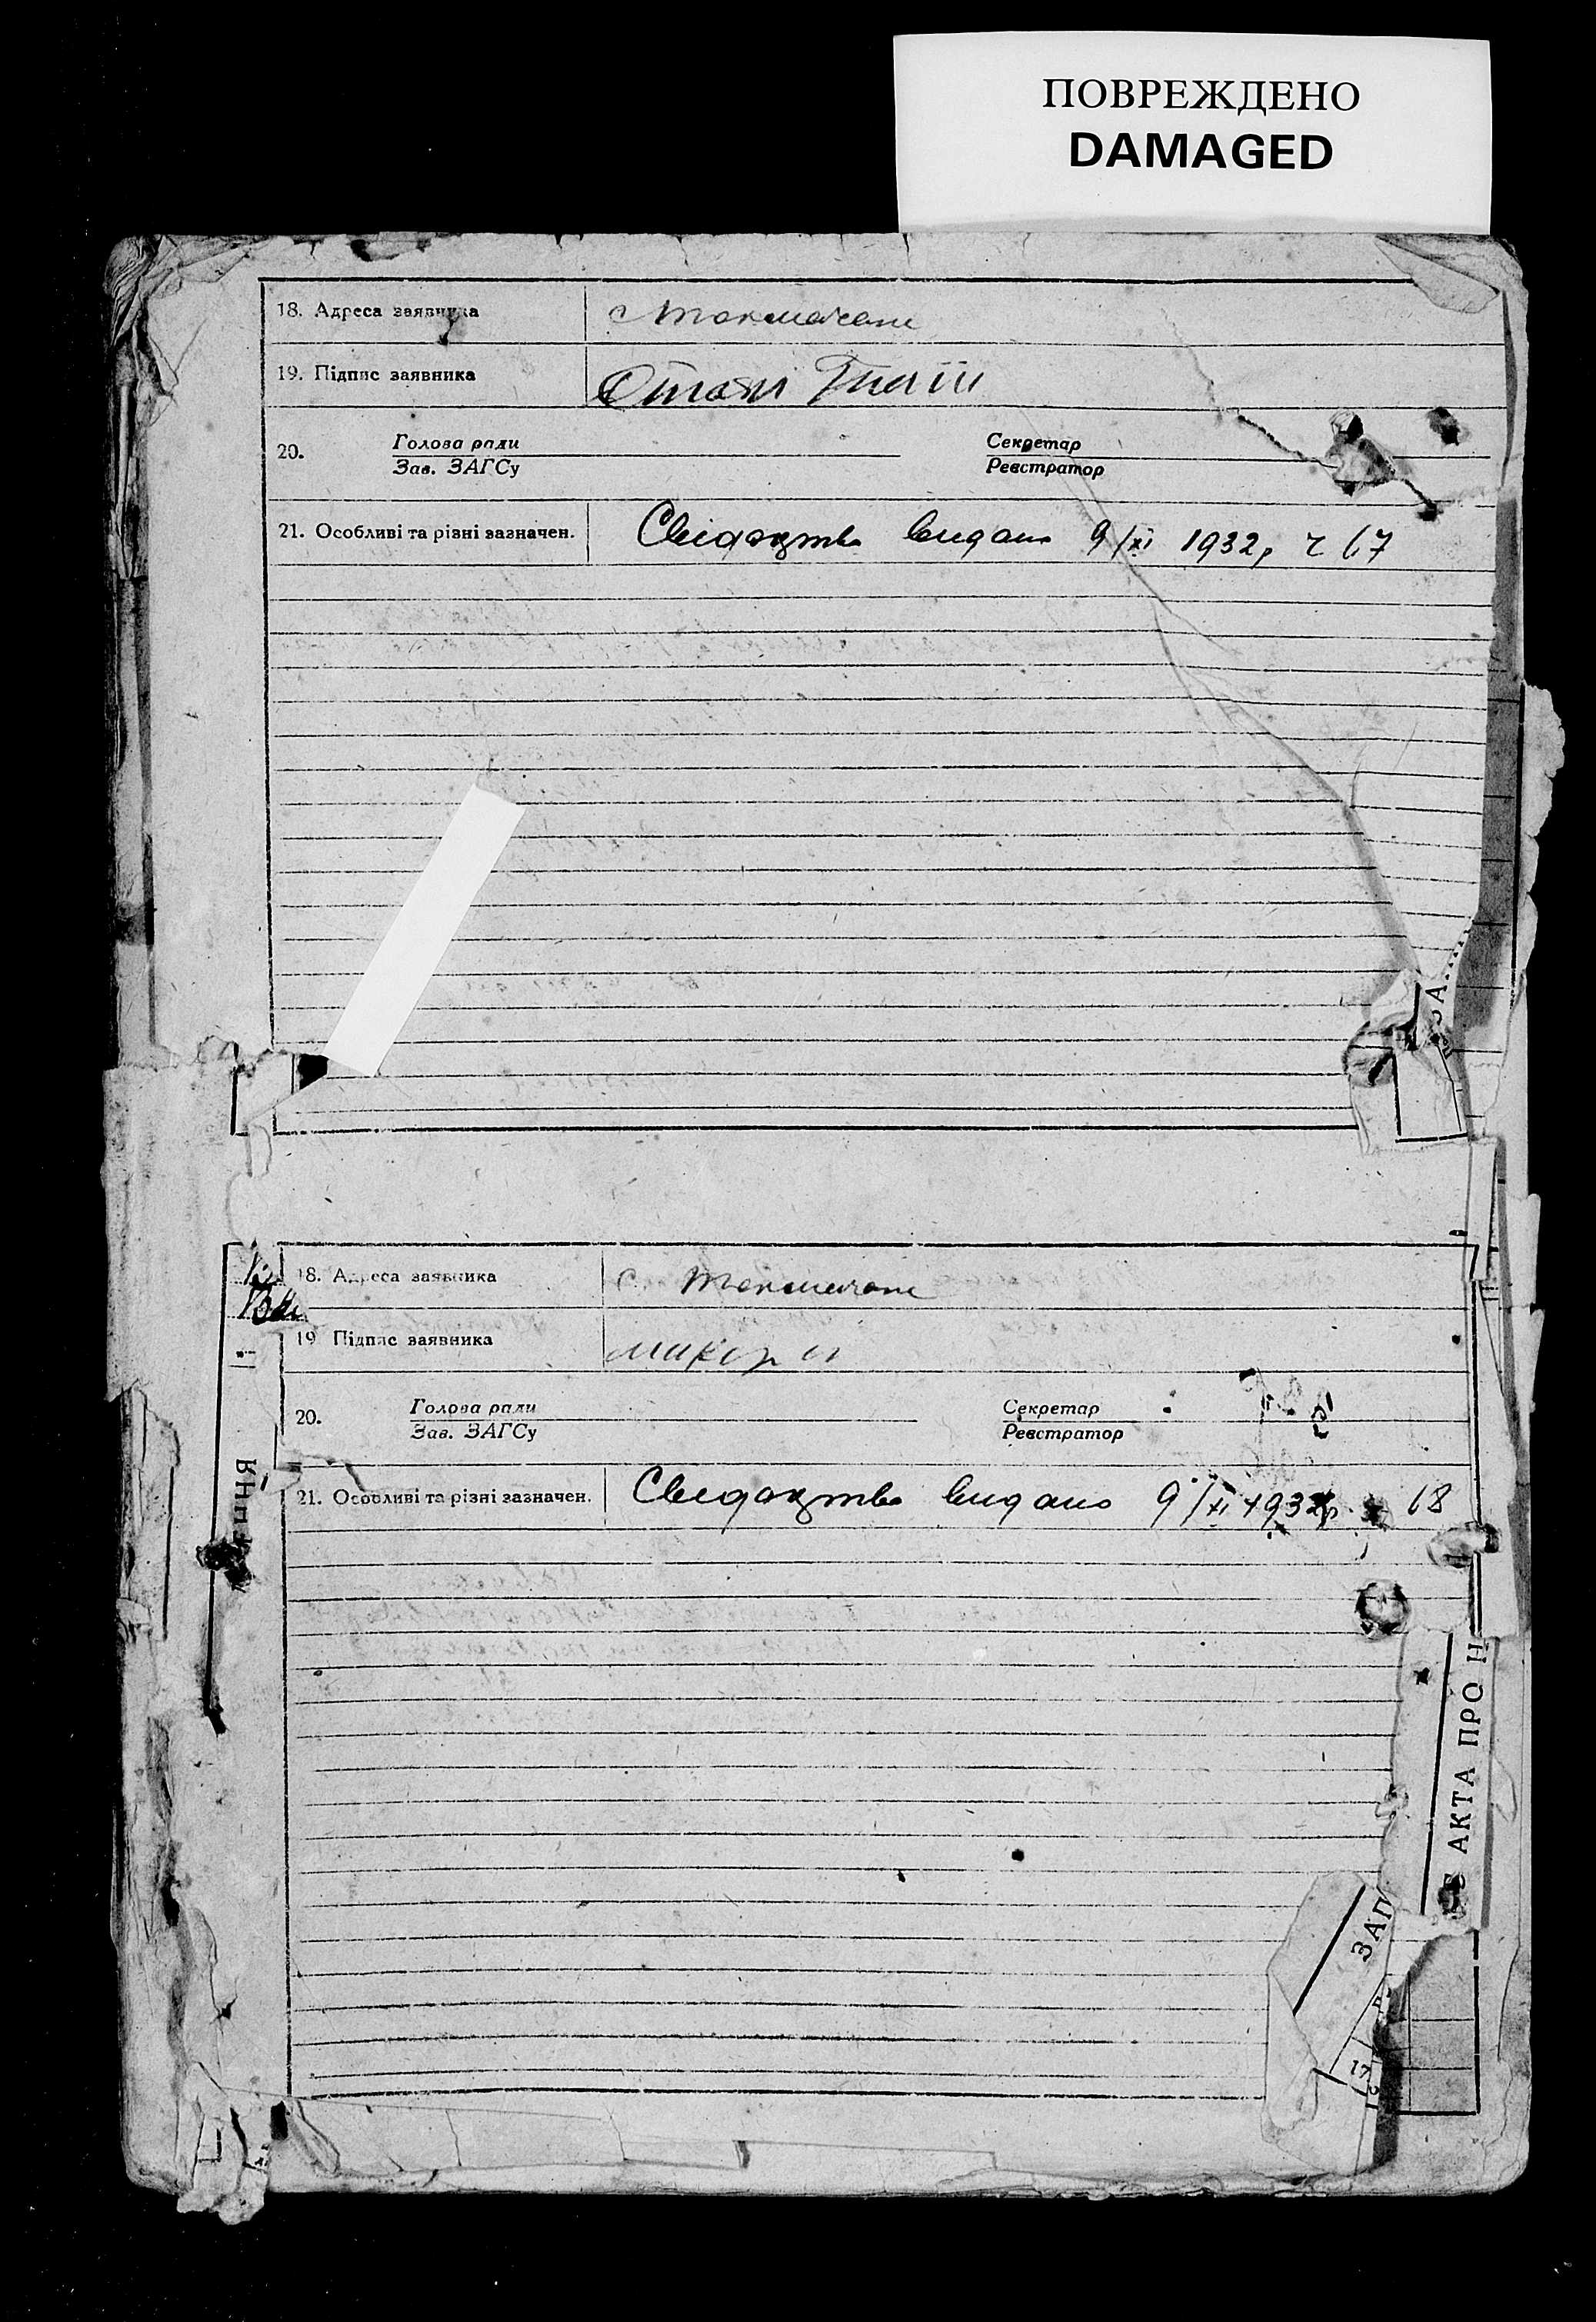 ПОВРЕЖДЕНО
DAMAGED
18. Адреса заявника
19. Підпис заявника
20. Голова ради Секретар
Зав. ЗАГСу Реєстратор
21. Особливі та різні зазначен. Свідоцтво видано 9/XI 1932р ч 67
18. Адреса заявника с.
19 Підпис заявника
20. Голова ради Секретар
Зав. ЗАГСу Реєстратор
21. Особливі та різні зазначен. Свідоцтво видано 9/XI 1932р 68
АКТА ПРО Н
ЗАП
17